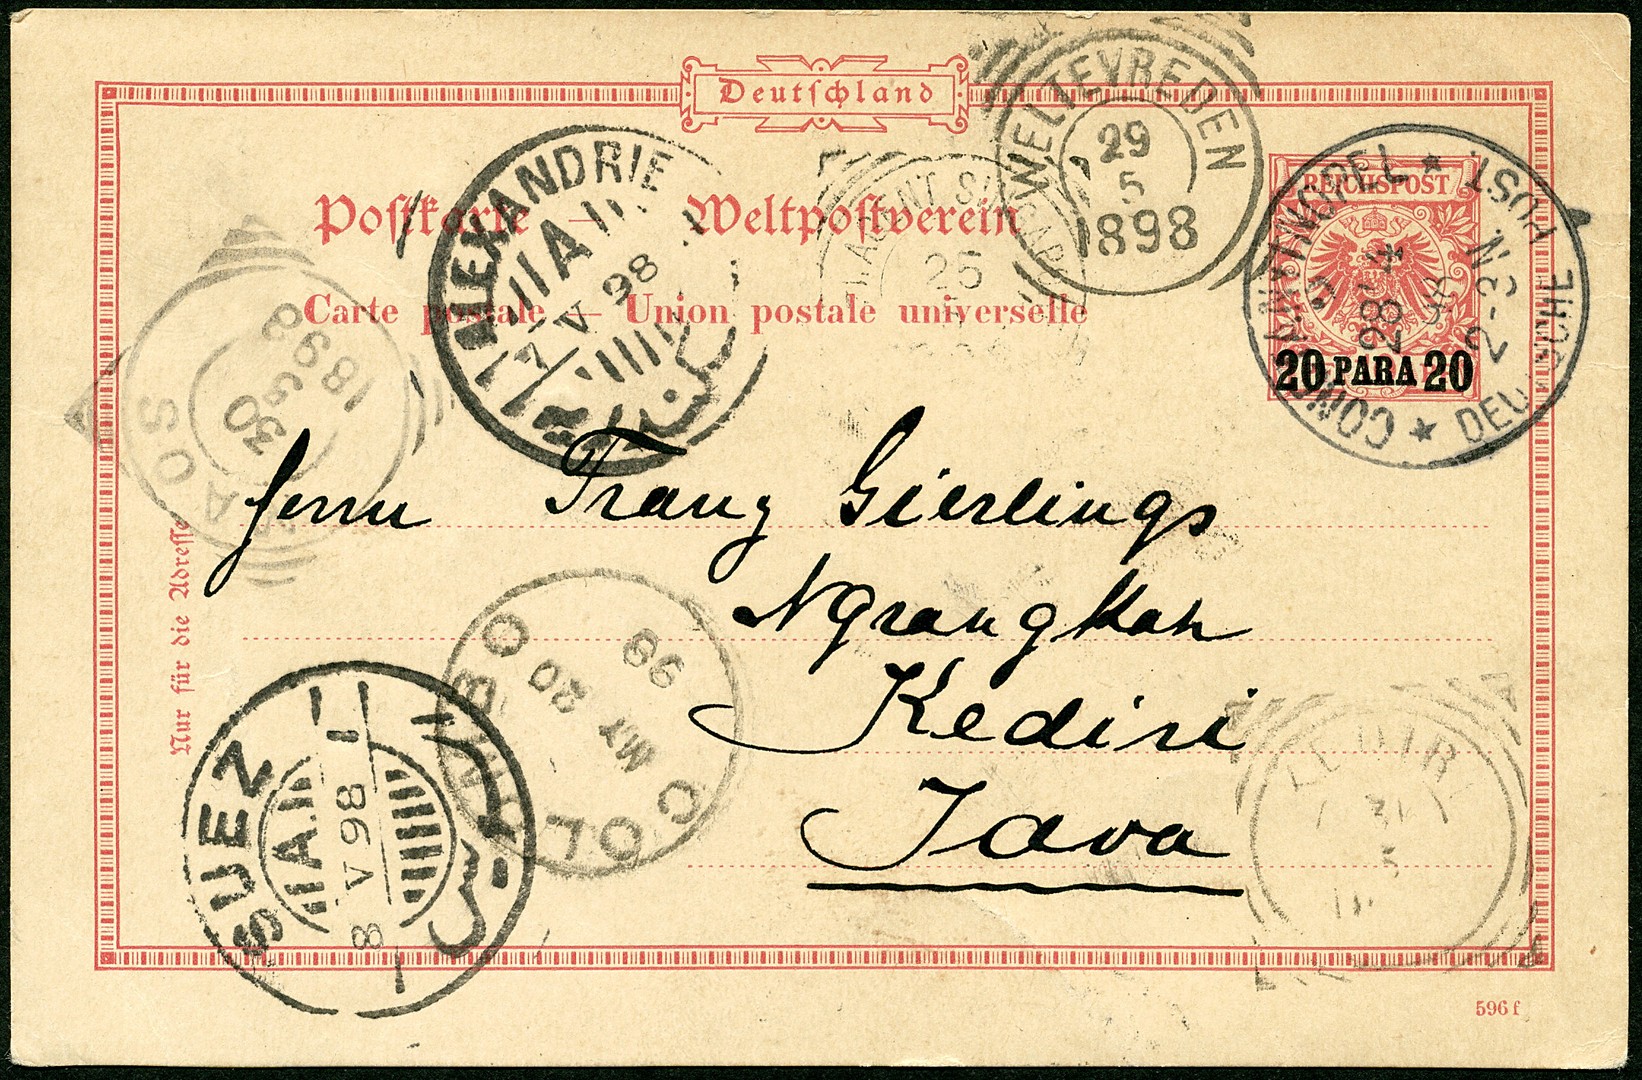 Deutschland
Postkarte — Weltpostverein
Carte postale — Union postale universelle
REICHSPOST
20 PARA 20
DEUTSCHE POST
28/4
2-3 N
WELTEVREDEN
29
5
1898
25
ALEXANDRIE
7 V 98
1898
30
Herrn Franz Gierlings
Ngrangkah
Kediri
Java
Nur für die Adresse
COLOMBO
MY 20
SUEZ
8 V 98
السويس
KEDIRI
31
5
596 f